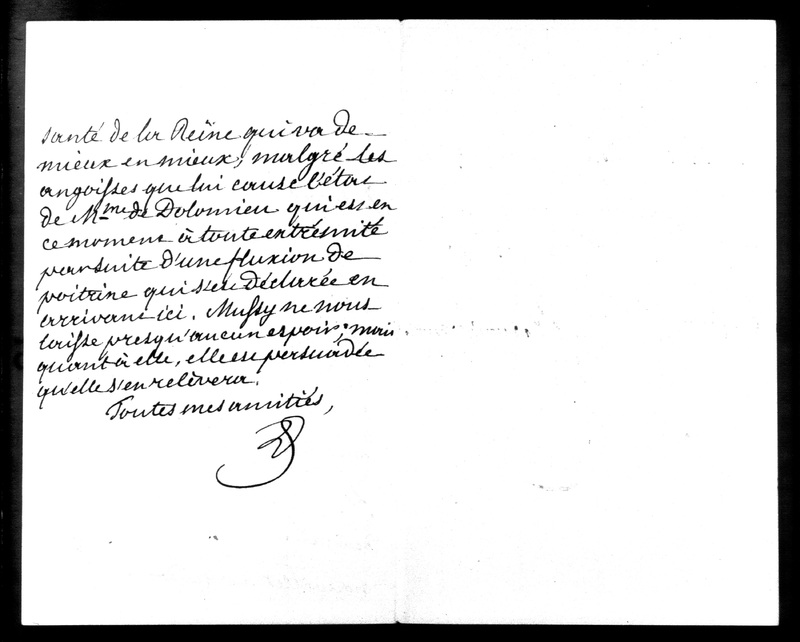 santé de la Reine qui va de
mieux en mieux, malgré les
angoisses que lui cause l'état
de Mme de Dolomieu qui est en
ce moment à toute extrémité
par suite d'une fluxion de
poitrine qui s'est déclarée en
arrivant ici. Mussy ne nous
laisse presqu'aucun espoir; mais
quant à elle, elle est persuadée
qu'elle s'en relèvera.
Toutes mes amitiés,